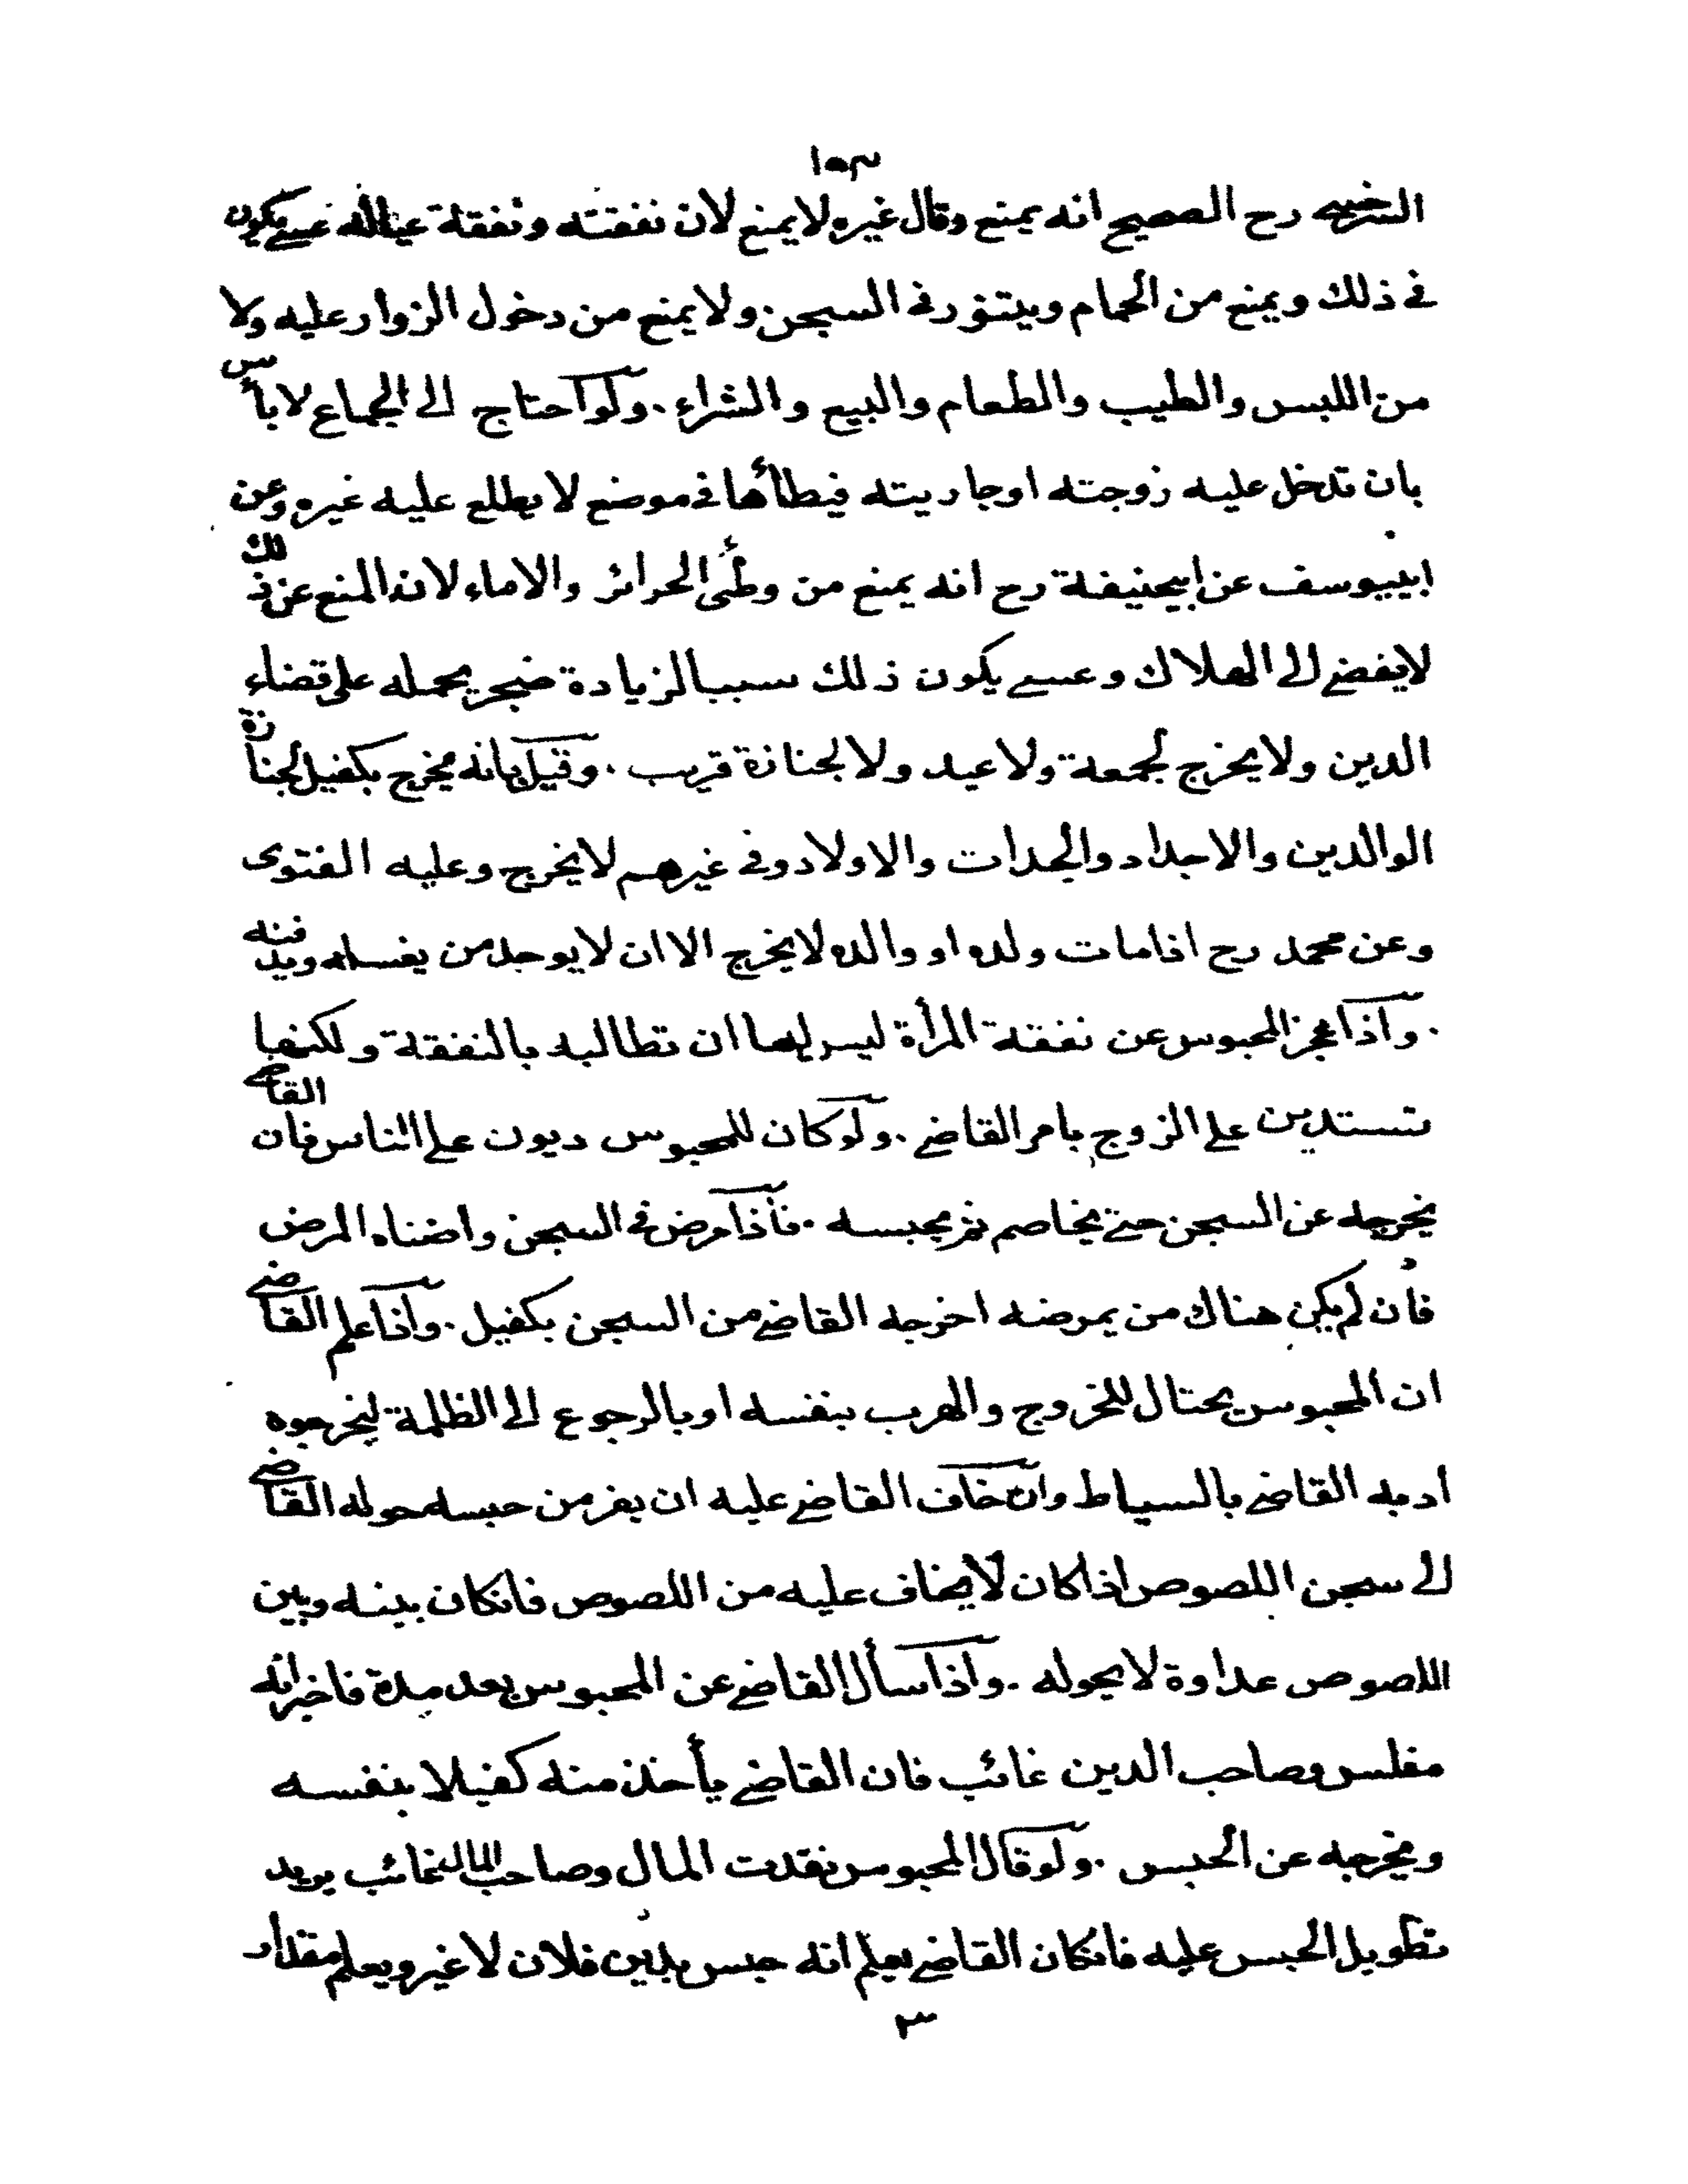 ١٥٣
السرخسي رح الصحيح انه يمنع وقال غيره لا يمنع لان نفقته ونفقة عياله عسى يكون
في ذلك ويمنع من الحمام ويتنور في السجن ولا يمنع من دخول الزوار عليه ولا
من اللبس والطيب والطعام والبيع والشراء . ولو احتاج الى الجماع لا بأس
بان تدخل عليه زوجته او جاريته فيطأها في موضع لا يطلع عليه غيره وعن
ابييوسف عن ابيحنيفة رح انه يمنع من وطئ الحرائر والاماء لان المنع عن ذلك
لا يفضي الى الهلاك وعسى يكون ذلك سببا لزيادة ضجر يحمله على قضاء
الدين ولا يخرج لجمعة ولا عيد ولا لجنازة قريب . وقيل بانه يخرج بكفيل لجنازة
الوالدين والاجداد والجدات والاولاد وفي غيرهم لا يخرج وعليه الفتوى
وعن محمد رح اذا مات ولده او والده لا يخرج الا ان لا يوجد من يغسله ويدفنه
. واذا عجز المحبوس عن نفقة المرأة ليس لها ان تطالبه بالنفقة ولكنها
تستدين على الزوج بامر القاضي . ولو كان للمحبوس ديون على الناس فان القاضي
يخرجه عن السجن حتى يخاصم ثم يحبسه . فاذا مرض في السجن واضناه المرض
فان لم يكن هناك من يمرضه اخرجه القاضي من السجن بكفيل . واذا علم القاضي
ان المحبوس يحتال للخروج والهرب بنفسه او بالرجوع الى الظلمة ليخرجوه
ادبه القاضي بالسياط وان خاف القاضي عليه ان يفر من حبسه حوله القاضي
الى سجن اللصوص اذا كان لا يخاف عليه من اللصوص فانكان بينه وبين
اللصوص عداوة لا يحوله . واذا سأل القاضي عن المحبوس بعد مدة فاخبر انه
مفلس وصاحب الدين غائب فان القاضي يأخذ منه كفيلا بنفسه
ويخرجه عن الحبس . ولو قال المحبوس نقدت المال وصاحب المال غائب يريد
تطويل الحبس عليه فانكان القاضي يعلم انه حبس بدين فلان لا غير ويعلم مقدار
٣